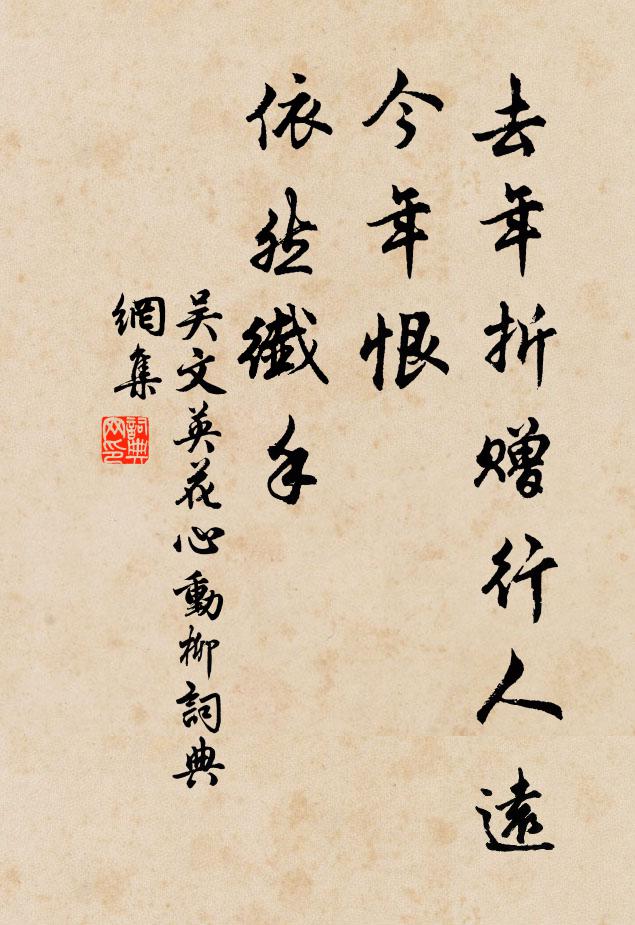 去年折赠行人遠
今年恨
依然纖手
吴文英花心動柳詞典
網集
詞典
网印